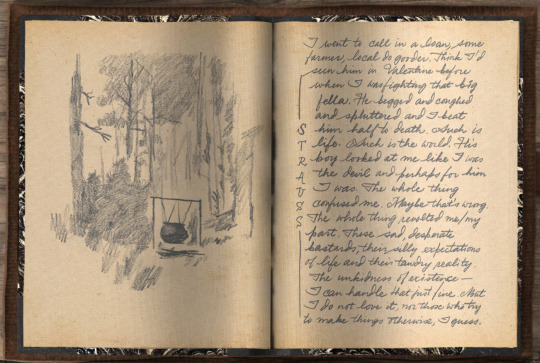 I went to call in a loan, some
farmer, local do gooder. Think I'd
seen him in Valentine before
when I was fighting that big
fella. He begged and coughed
and spluttered and I beat
him half to death. Such is
life. Such is the world. His
boy looked at me like I was
the devil and perhaps for him
I was. The whole thing
confused me. Maybe that's wrong.
The whole thing revolted me/my
part. Those sad, desperate
bastards, their silly expectations
of life and their tawdry reality
The unkindness of existence—
I can handle that just fine. But
I do not love it, nor those who try
to make things otherwise, I guess.
STRAUSS